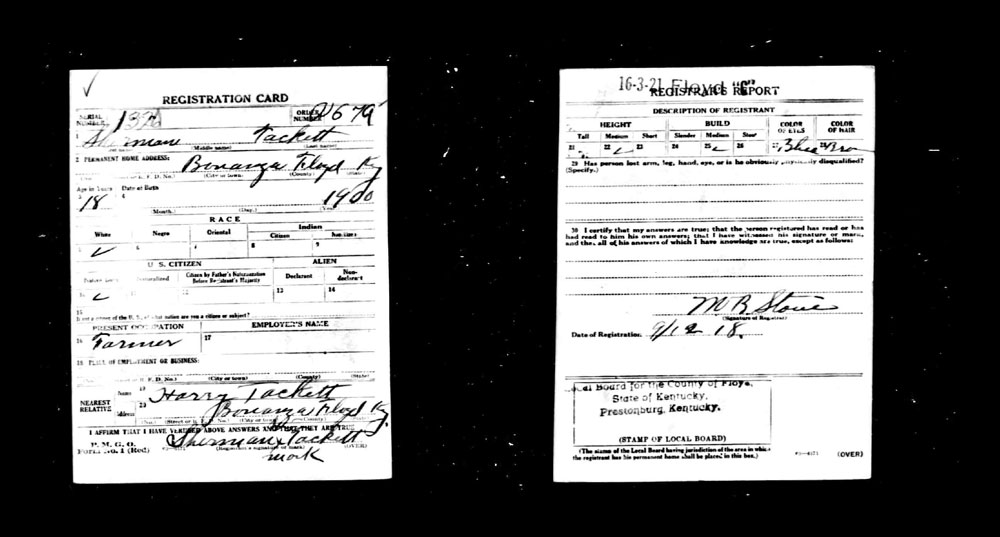 REGISTRATION CARD
SERIAL NUMBER
ORDER NUMBER 2679
1 Sherman Tackett
(Middle name) (Last name)
2 PERMANENT HOME ADDRESS:
Bonanza Floyd Ky
(City or town) (County)
Age in Years Date of Birth
18 1900
(Month.) (Day.) (Year)
RACE
White Negro Oriental Indians
Citizen
✓ 6 7 8 9
U. S. CITIZEN ALIEN
Native born Naturalized Citizen by Father's Naturalization Before Registrant's Majority Declarant Non-declarant
✓ 13 14
15
If not a citizen of the U. S., of what nation are you a citizen or subject?
PRESENT OCCUPATION EMPLOYER'S NAME
16 Farmer 17
18 PLACE OF EMPLOYMENT OR BUSINESS:
R. F. D. No.) (City or town) (County) (State)
NEAREST RELATIVE
Name 19 Harry Tackett
Address 20 Bonanza Floyd Ky
I AFFIRM THAT I HAVE VERIFIED ABOVE ANSWERS AND THAT THEY ARE TRUE
P. M. G. O.
Form No. 1 (Red)
Sherman Tackett
(Registrant's signature or mark) (OVER)
mark
16-3-21 Floyd "C"
REGISTRAR'S REPORT
DESCRIPTION OF REGISTRANT
HEIGHT BUILD COLOR OF EYES COLOR OF HAIR
Tall Medium Short Slender Medium Stout
21 22 ✓ 23 24 25 ✓ 26 27 Blue 28 Bro
29 Has person lost arm, leg, hand, eye, or is he obviously physically disqualified?
(Specify.)
30 I certify that my answers are true; that the person registered has read or has
had read to him his own answers; that I have witnessed his signature or mark,
and that all of his answers of which I have knowledge are true, except as follows:
M B Stone
(Signature of Registrar)
Date of Registration 9/12 18.
Local Board for the County of Floyd,
State of Kentucky,
Prestonburg, Kentucky.
(STAMP OF LOCAL BOARD)
(The stamp of the Local Board having jurisdiction of the area in which
the registrant has his permanent home shall be placed in this box.)
(OVER)